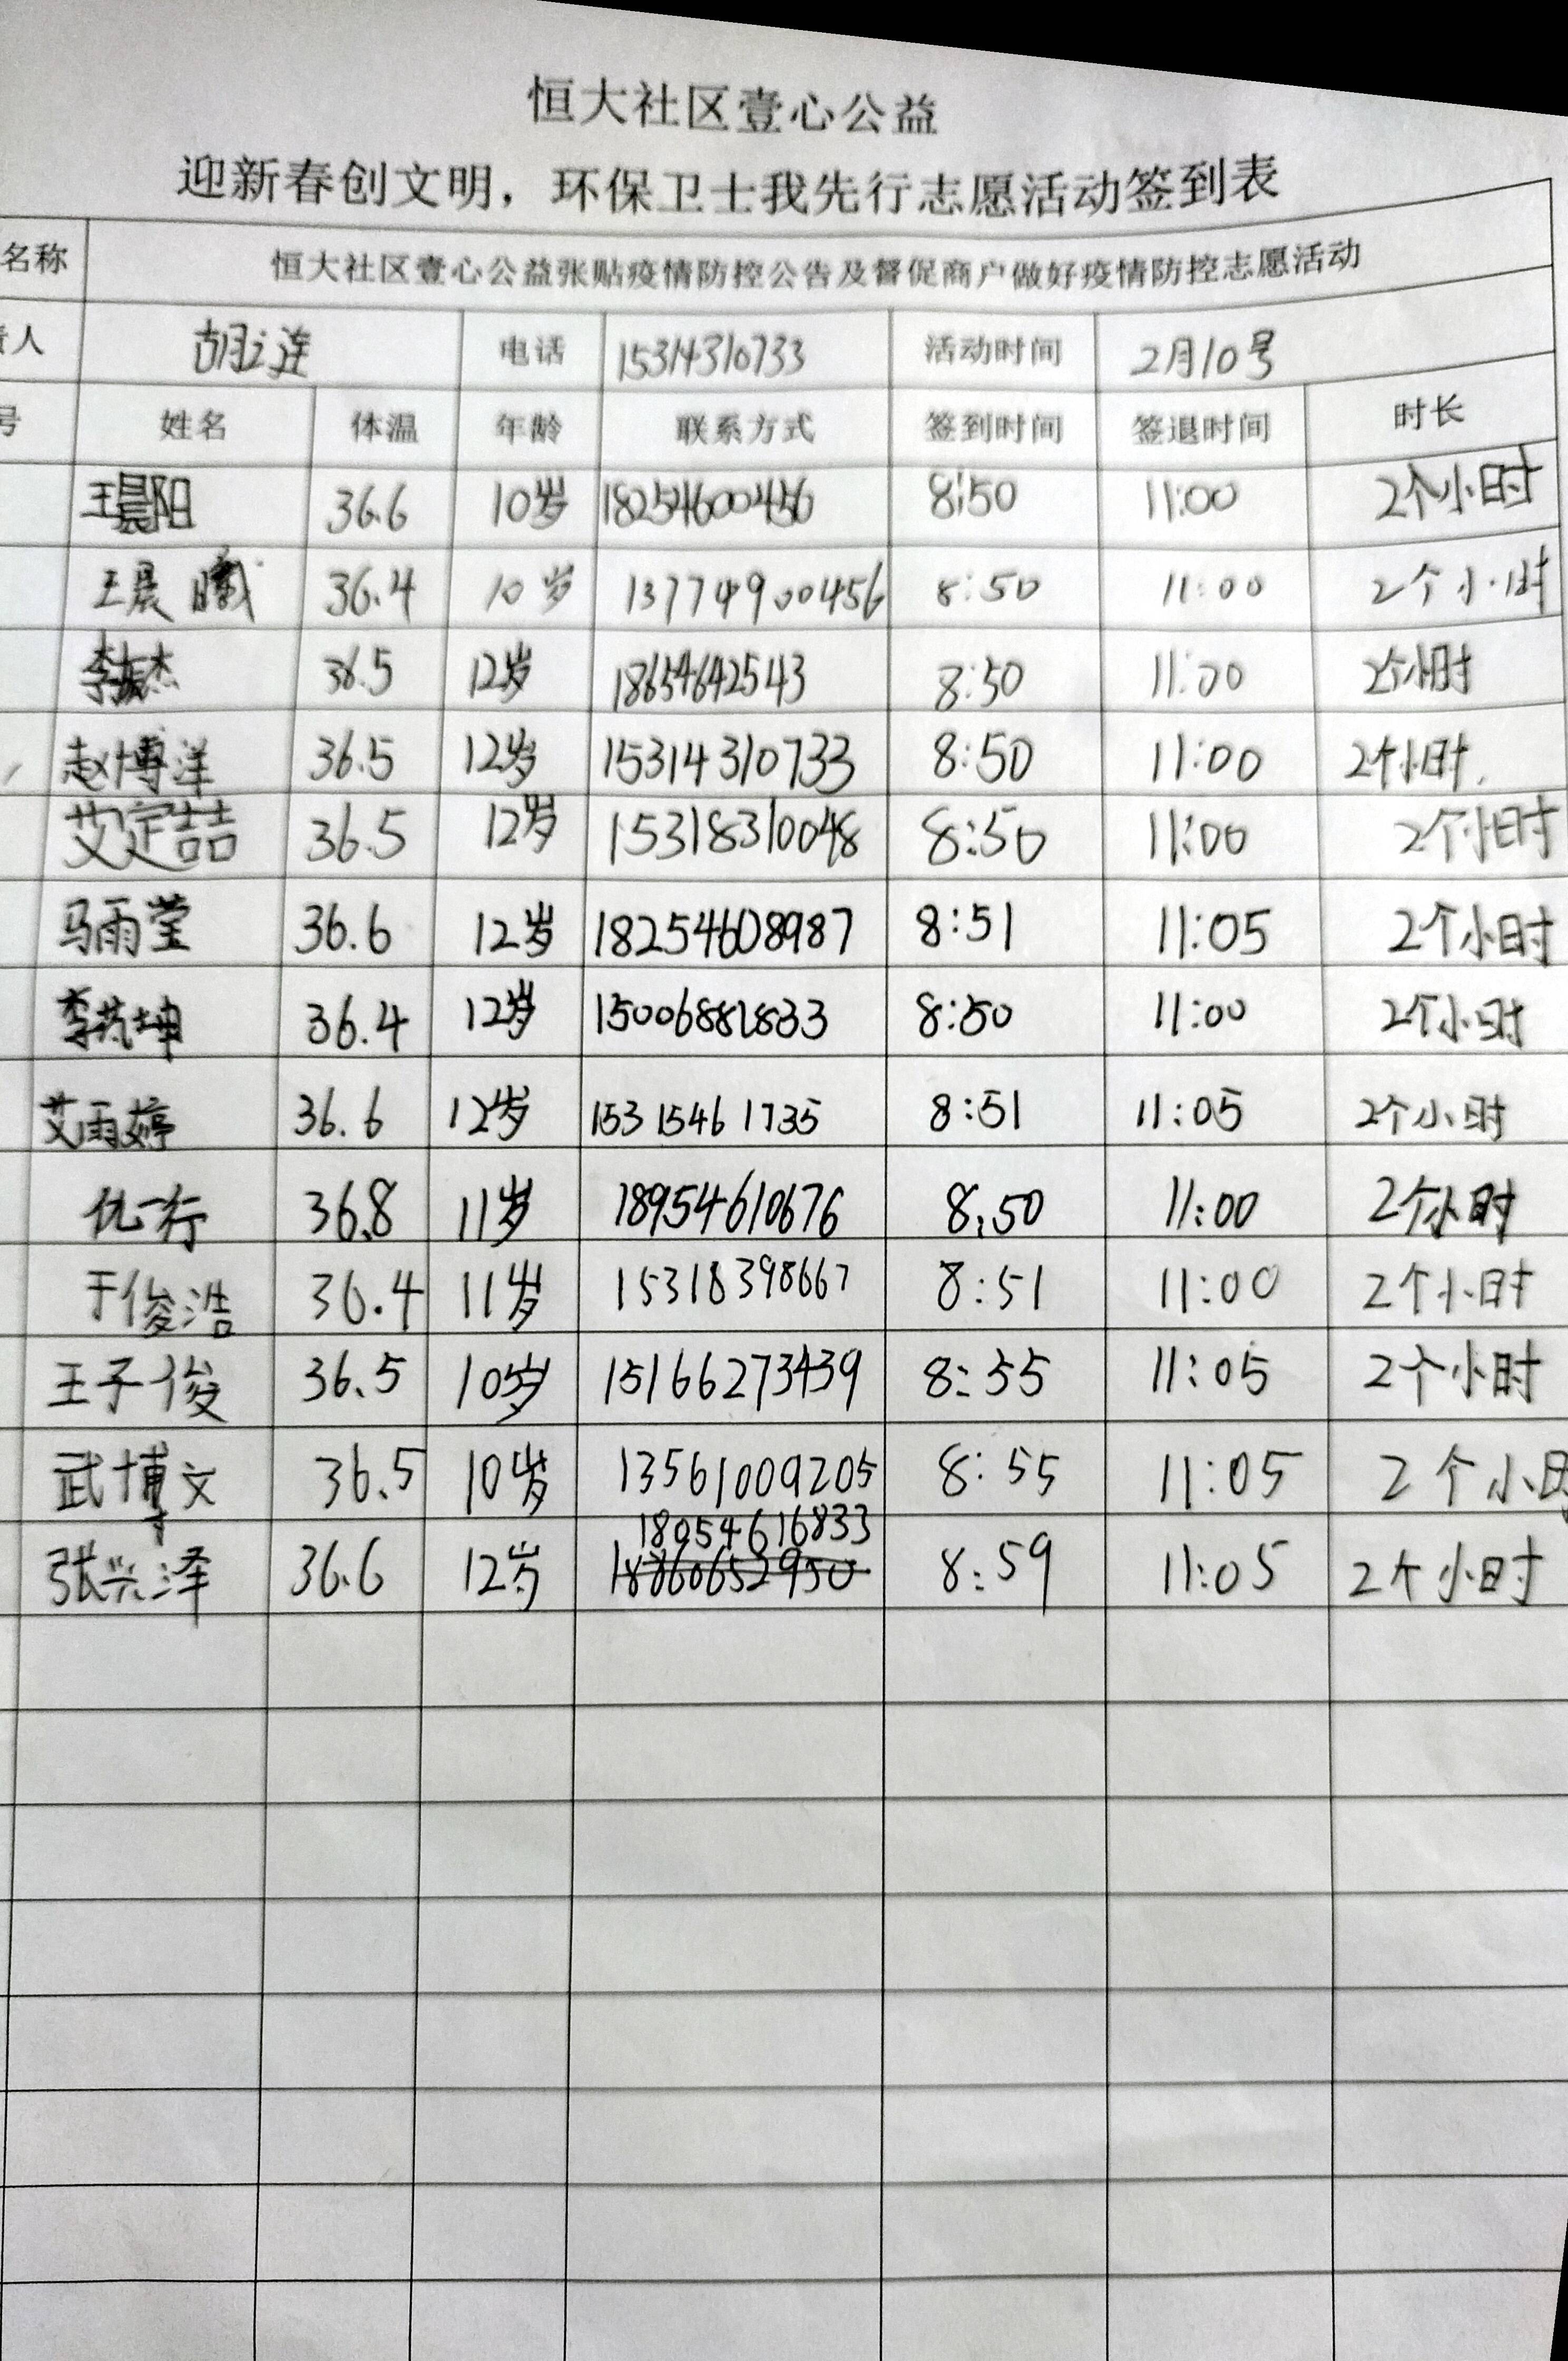 恒大社区壹心公益
迎新春创文明，环保卫士我先行志愿活动签到表
名称 恒大社区壹心公益张贴疫情防控公告及督促商户做好疫情防控志愿活动
人 胡连 电话 15314310733 活动时间 2月10号
号 姓名 体温 年龄 联系方式 签到时间 签退时间 时长
王晨阳 36.6 10岁 18254600456 8:50 11:00 2个小时
王晨曦 36.4 10岁 13774900456 8:50 11:00 2个小时
李振杰 36.5 12岁 18654642543 8:50 11:00 2个小时
赵博洋 36.5 12岁 15314310733 8:50 11:00 2个小时.
艾定喆 36.5 12岁 15318310048 8:50 11:00 2个小时
马雨莹 36.6 12岁 18254608987 8:51 11:05 2个小时
李坤 36.4 12岁 15006881833 8:50 11:00 2个小时
艾雨婷 36.6 12岁 15315461735 8:51 11:05 2个小时
仇一行 36.8 11岁 18954610676 8:50 11:00 2个小时
于俊浩 36.4 11岁 15318398667 8:51 11:00 2个小时
王子俊 36.5 10岁 15166273439 8:55 11:05 2个小时
武博文 36.5 10岁 13561009205 8:55 11:05 2个小时
18054616833
张兴泽 36.6 12岁 18860652950 8:59 11:05 2个小时